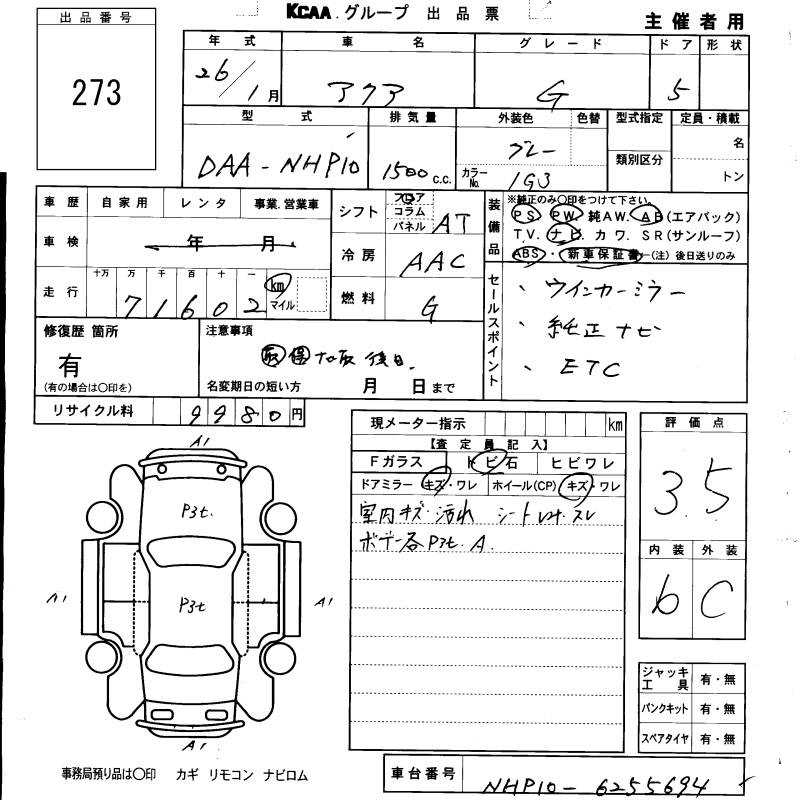 KCAA グループ 出品票
主催者用
出品番号
273
年式 車名 グレード ドア 形状
26/1月 アクア G 5
型式 排気量 外装色 色替 型式指定 定員・積載
DAA-NHP10 1500 c.c. グレー 名
カラーNo. 1G3 類別区分 トン
車歴 自家用 レンタ 事業.営業車
車検 年 月
走行 十万 万 千 百 十 一
71602 km マイル
シフト フロア コラム パネル AT
冷房 AAC
燃料 G
装備品
※純正のみ〇印をつけて下さい。
PS PW. 純AW. AB(エアバック)
TV. ナビ カワ. SR(サンルーフ)
ABS・新車保証書―(注)後日送りのみ
セールスポイント
、ウインカーミラー
、純正ナビ
、ETC
修復歴 箇所
有
(有の場合は〇印を)
注意事項
後日.
名変期日の短い方 月 日まで
リサイクル料 9980円
現メーター指示 km
【査定員記入】
Fガラス トビ石 ヒビワレ
ドアミラー キズ・ワレ ホイール(CP) キズ・ワレ
室内キズ・汚れ シート スレ
ボデー各P3t. A.
評価点
3.5
内装 外装
6 C
A1
P3t.
A1 P3t A1
A1
ジャッキ工具 有・無
パンクキット 有・無
スペアタイヤ 有・無
事務局預り品は〇印 カギ リモコン ナビロム
車台番号 NHP10-6255694